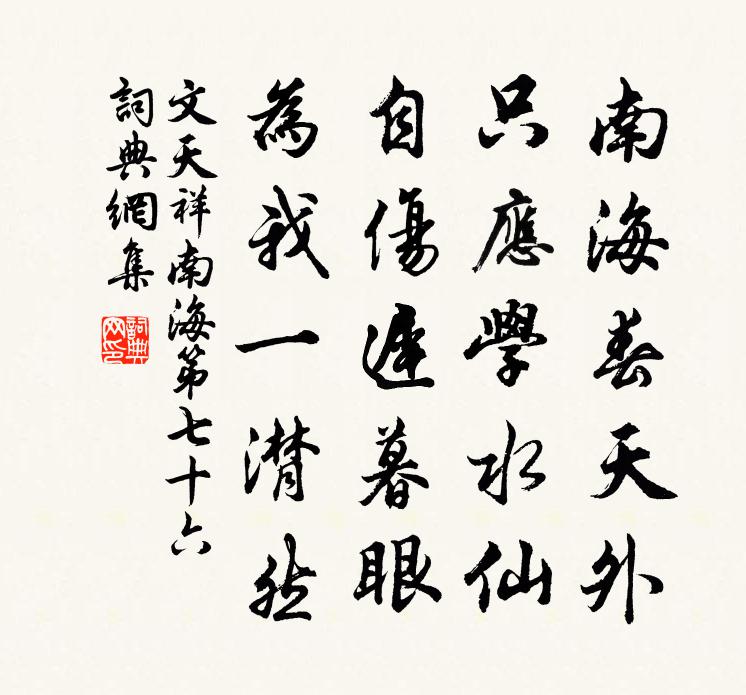 南海春天外
只應學水仙
自傷遲暮眼
為我一潸然
文天祥南海第七十六
詞典網集
詞典網印